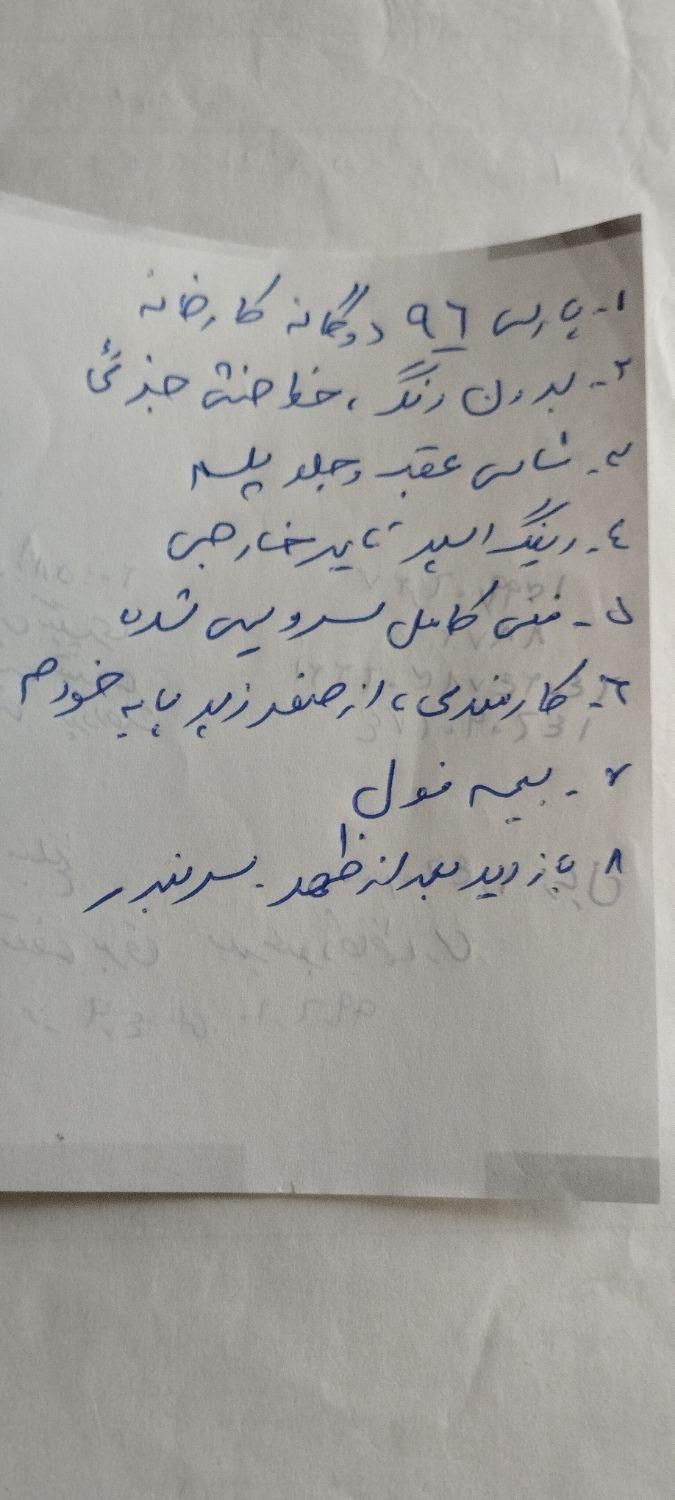 ۱- پارس ۹٦ دوگانه کارخانه
۲- بدون رنگ، خط خش جزئی
۳- شاسی عقب و جلو پلمپ
٤- رینگ اسپر تایر خارجی
۵- فنی کامل سرویس شده
٦- کارمندی، از صفر زیر پای خودم
۷- بیمه فول
۸ بازدید بعد از ظهر - سربندر